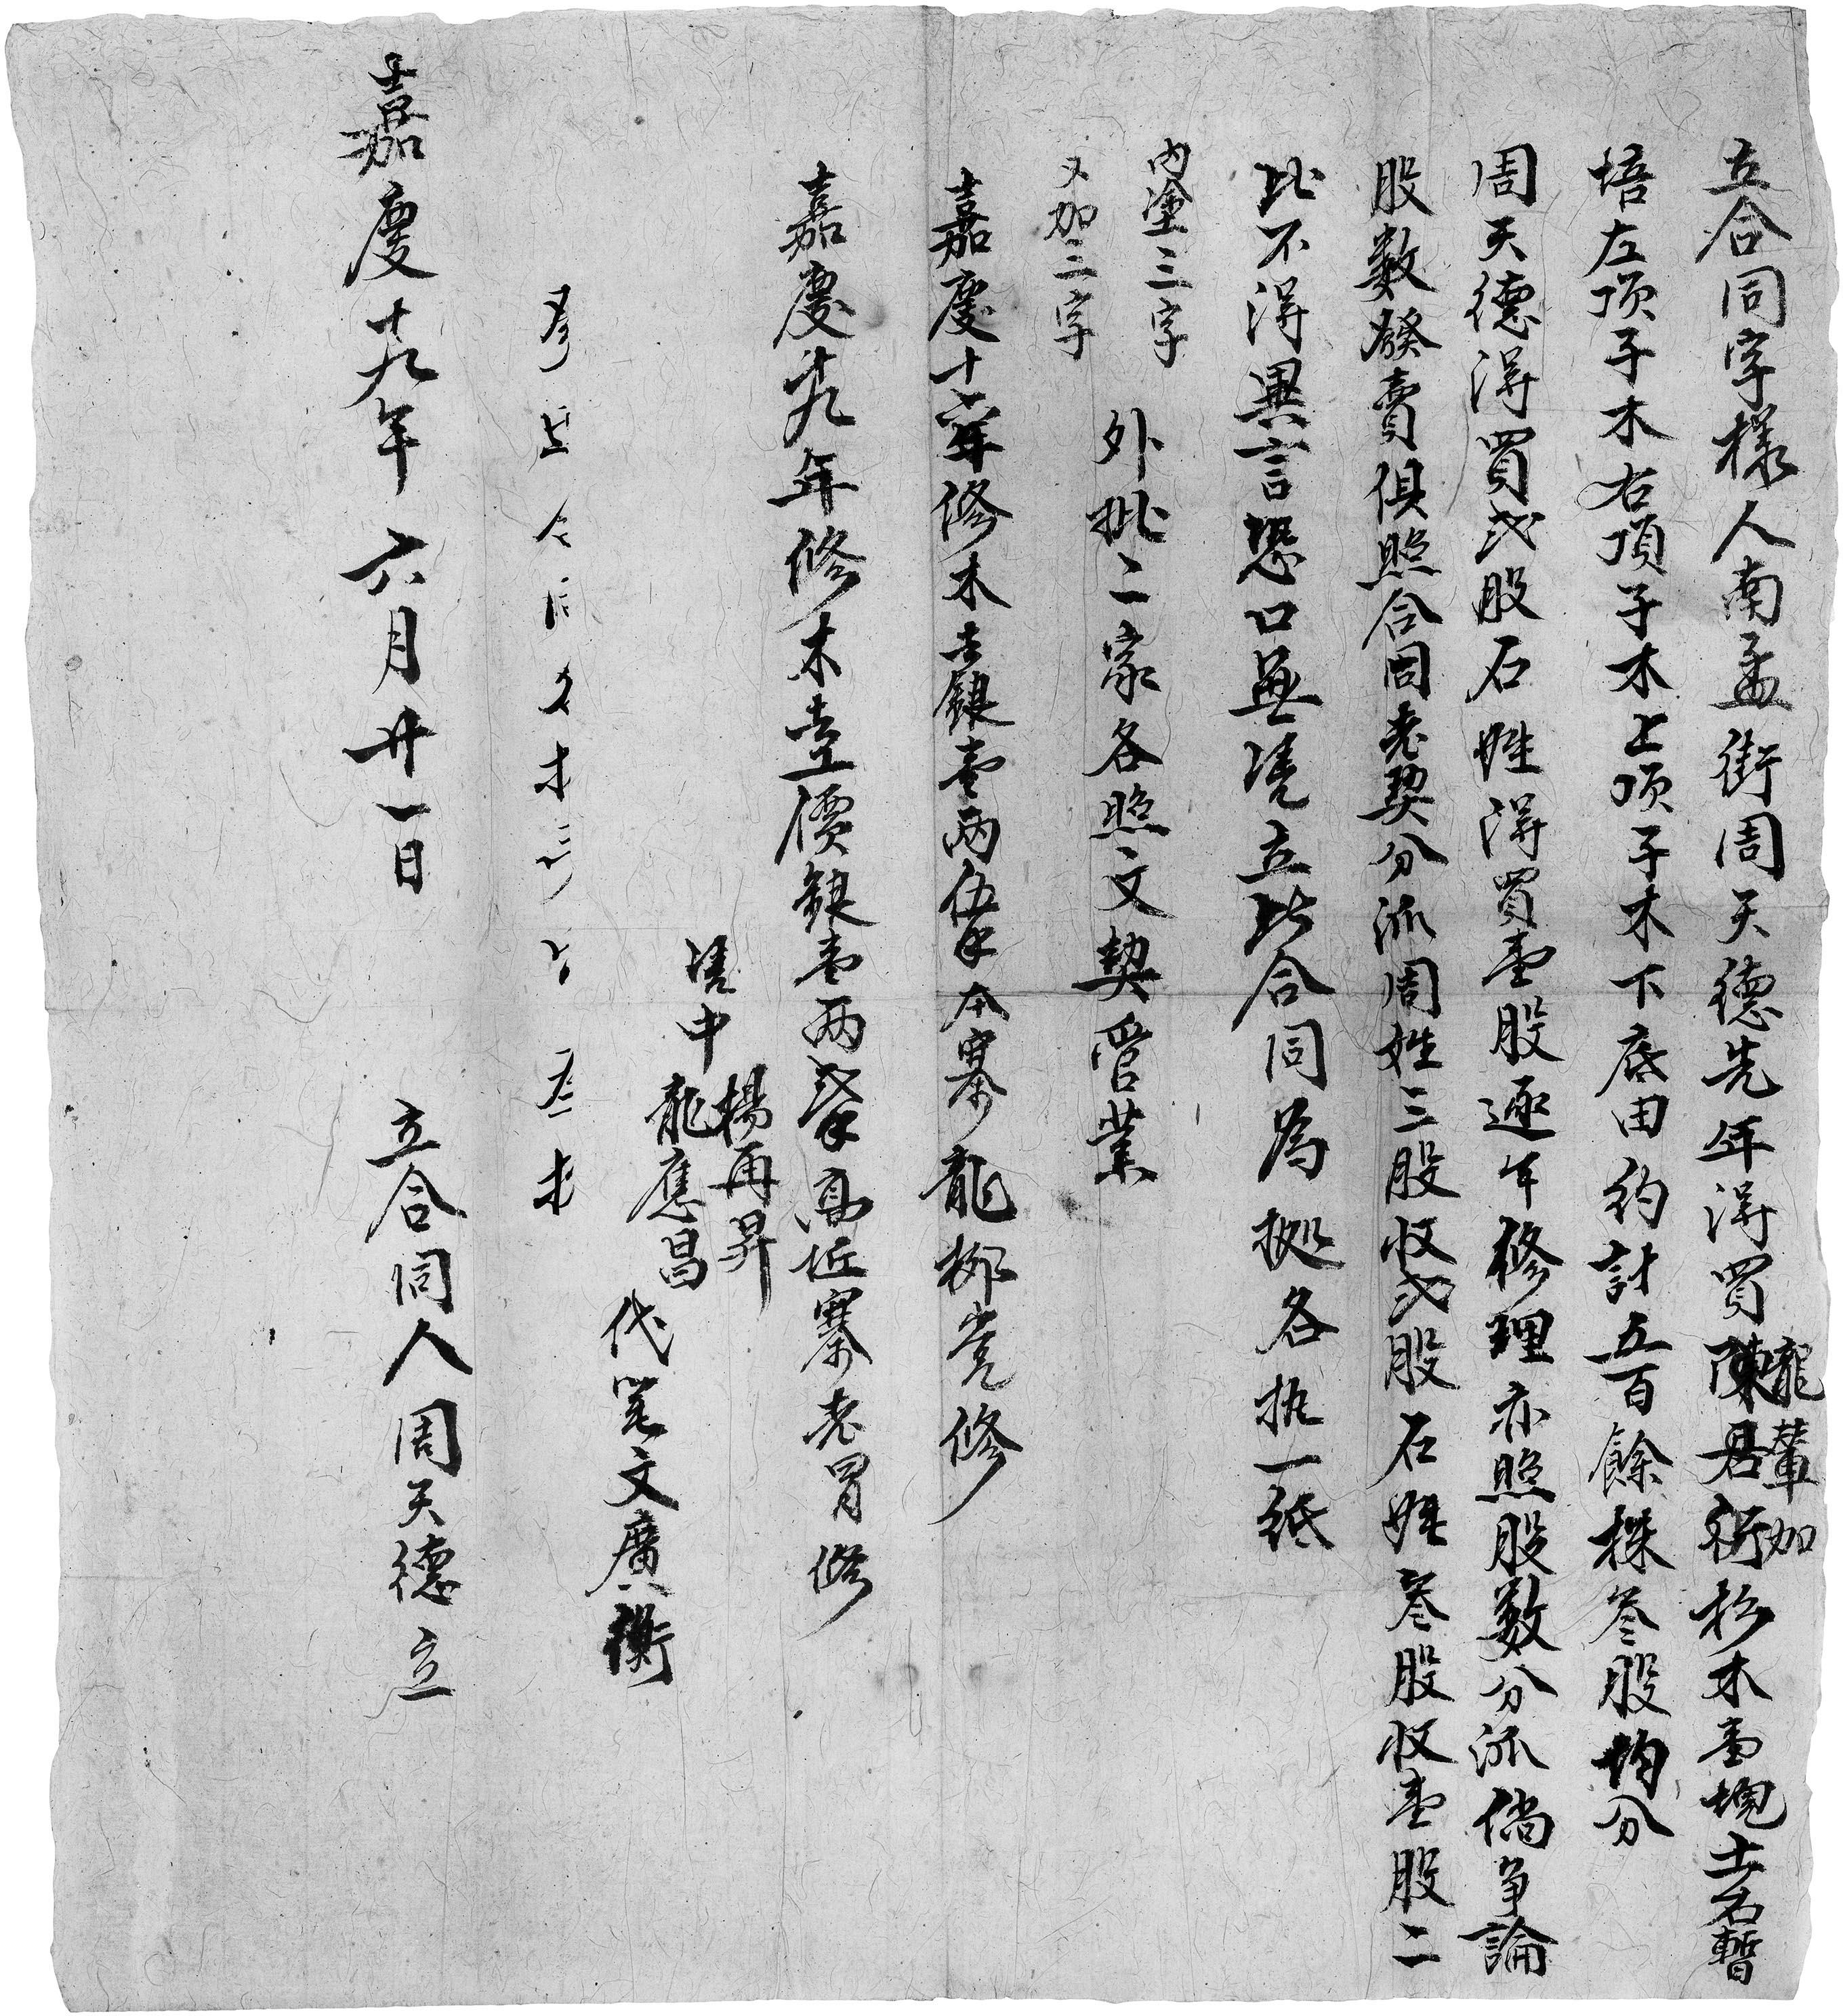 立合同字樣人南孟街周天德先年得買龍輦加陳君衡杉木壹塊土名暫
培左項子木右項子木上項子木下底田約計五百餘株叁股均分
周天德得買貳股石姓得買壹股逐年修理亦照股數分派倘争論
股數發賣俱照合同老契分派周姓三股收貳股石姓叁股收壹股二
比不得異言恐口無凴立此合同為拠各执一紙
內塗三字
又加二字
外批二家各照文契管業
嘉慶十六年修木去銀壹兩伍錢本寨龍梛党修
嘉慶十九年修木去工價銀壹两貳錢高坵寨老冐修
凴中
楊再昇
龍應昌
代筆文廣衡
嘉慶十九年六月廿一日 立合同人周天德立